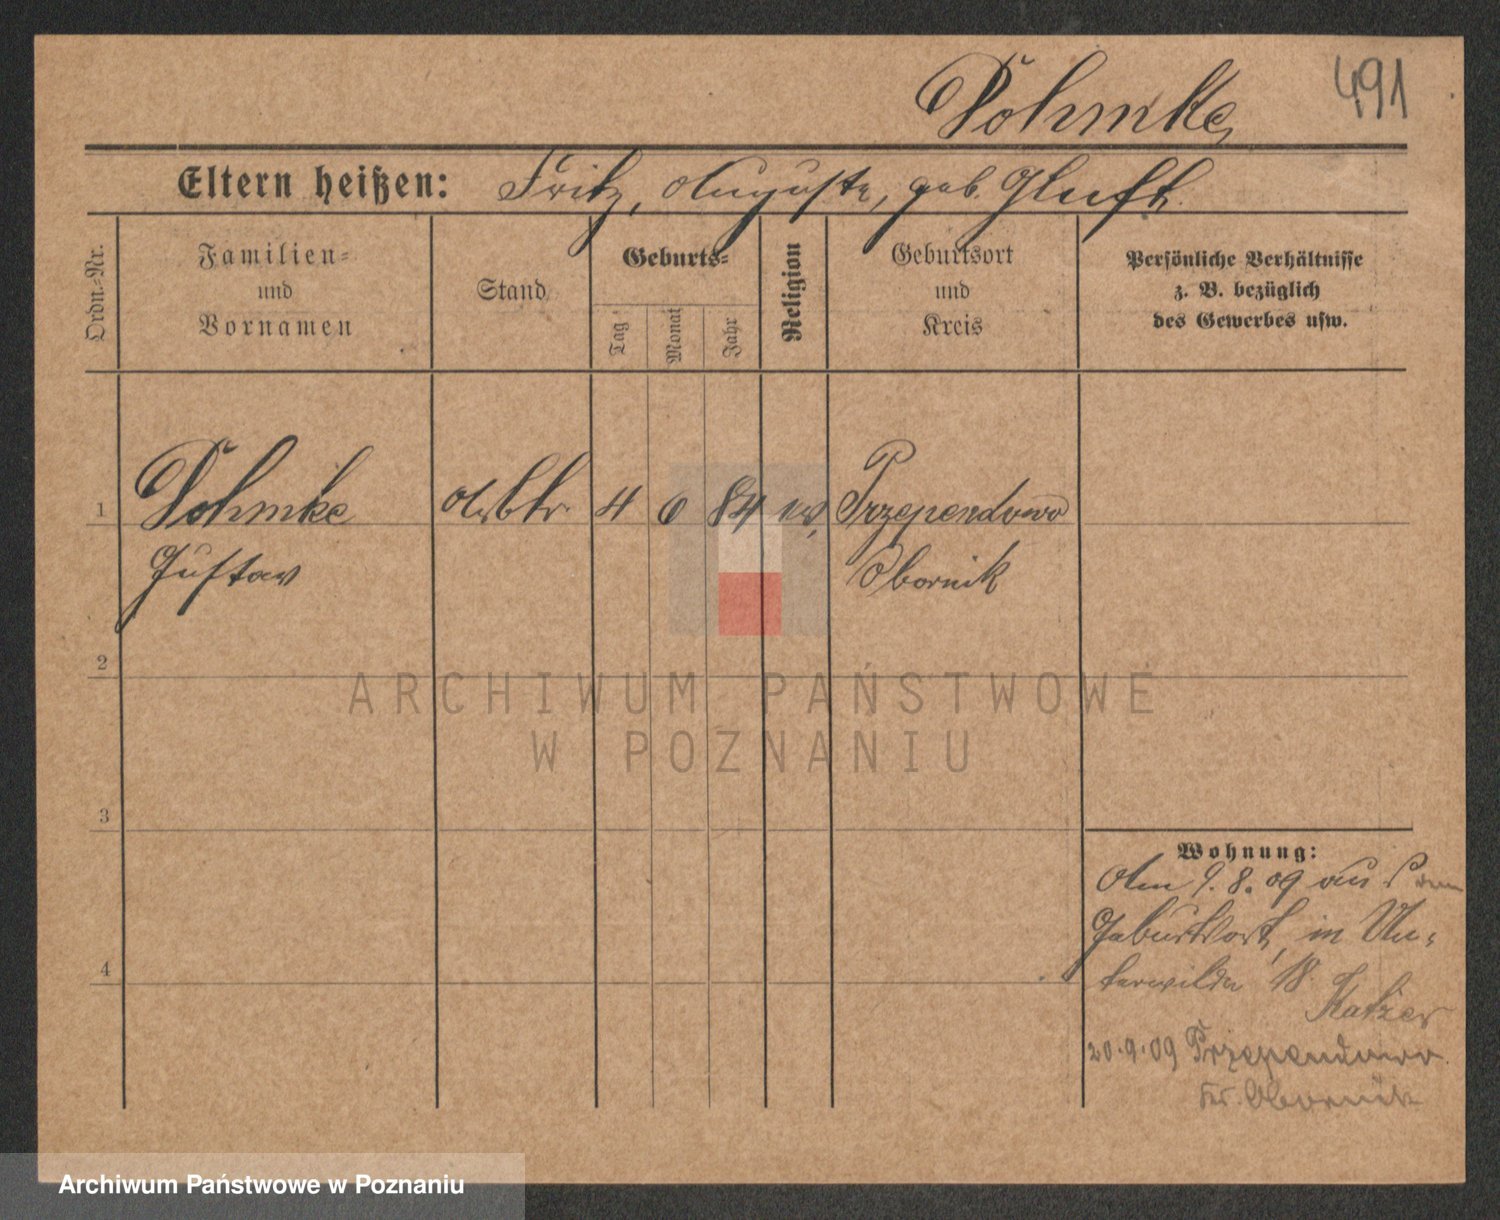 Pohmke
491
Eltern heißen: Fritz, Auguste, geb.
Ordn.-Nr.
Familien-
und
Vornamen
Stand
Geburts-
Tag
Monat
Jahr
Religion
Geburtsort
und
Kreis
Persönliche Verhältnisse
z. B. bezüglich
des Gewerbes usw.
1 Pohmke Arbtr. 4 6 84 ev. Przependowo
Gustav Obornik
2
3
4
Wohnung:
Am 9.8.09 aus dem
Geburtsort, in Un-
terwilda 18.
Katzer
20.9.09 Przependowo
Kr. Obornik
ARCHIWUM PAŃSTWOWE
W POZNANIU
Archiwum Państwowe w Poznaniu